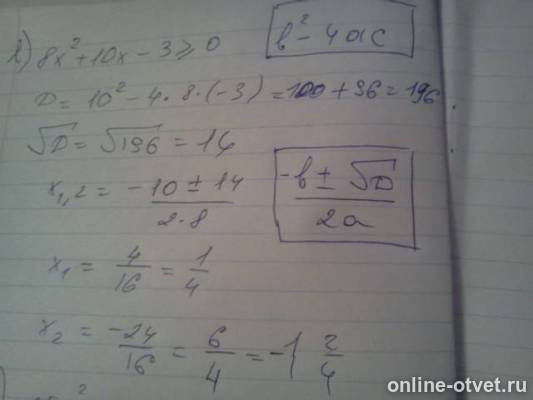 в) 8x² + 10x - 3 ≥ 0
b² - 4ac
D = 10² - 4 · 8 · (-3) = 100 + 96 = 196
√D = √196 = 14
x₁,₂ = -10 ± 14 / 2·8
-b ± √D / 2a
x₁ = 4/16 = 1/4
x₂ = -24/16 = 6/4 = -1 2/4
online-otvet.ru